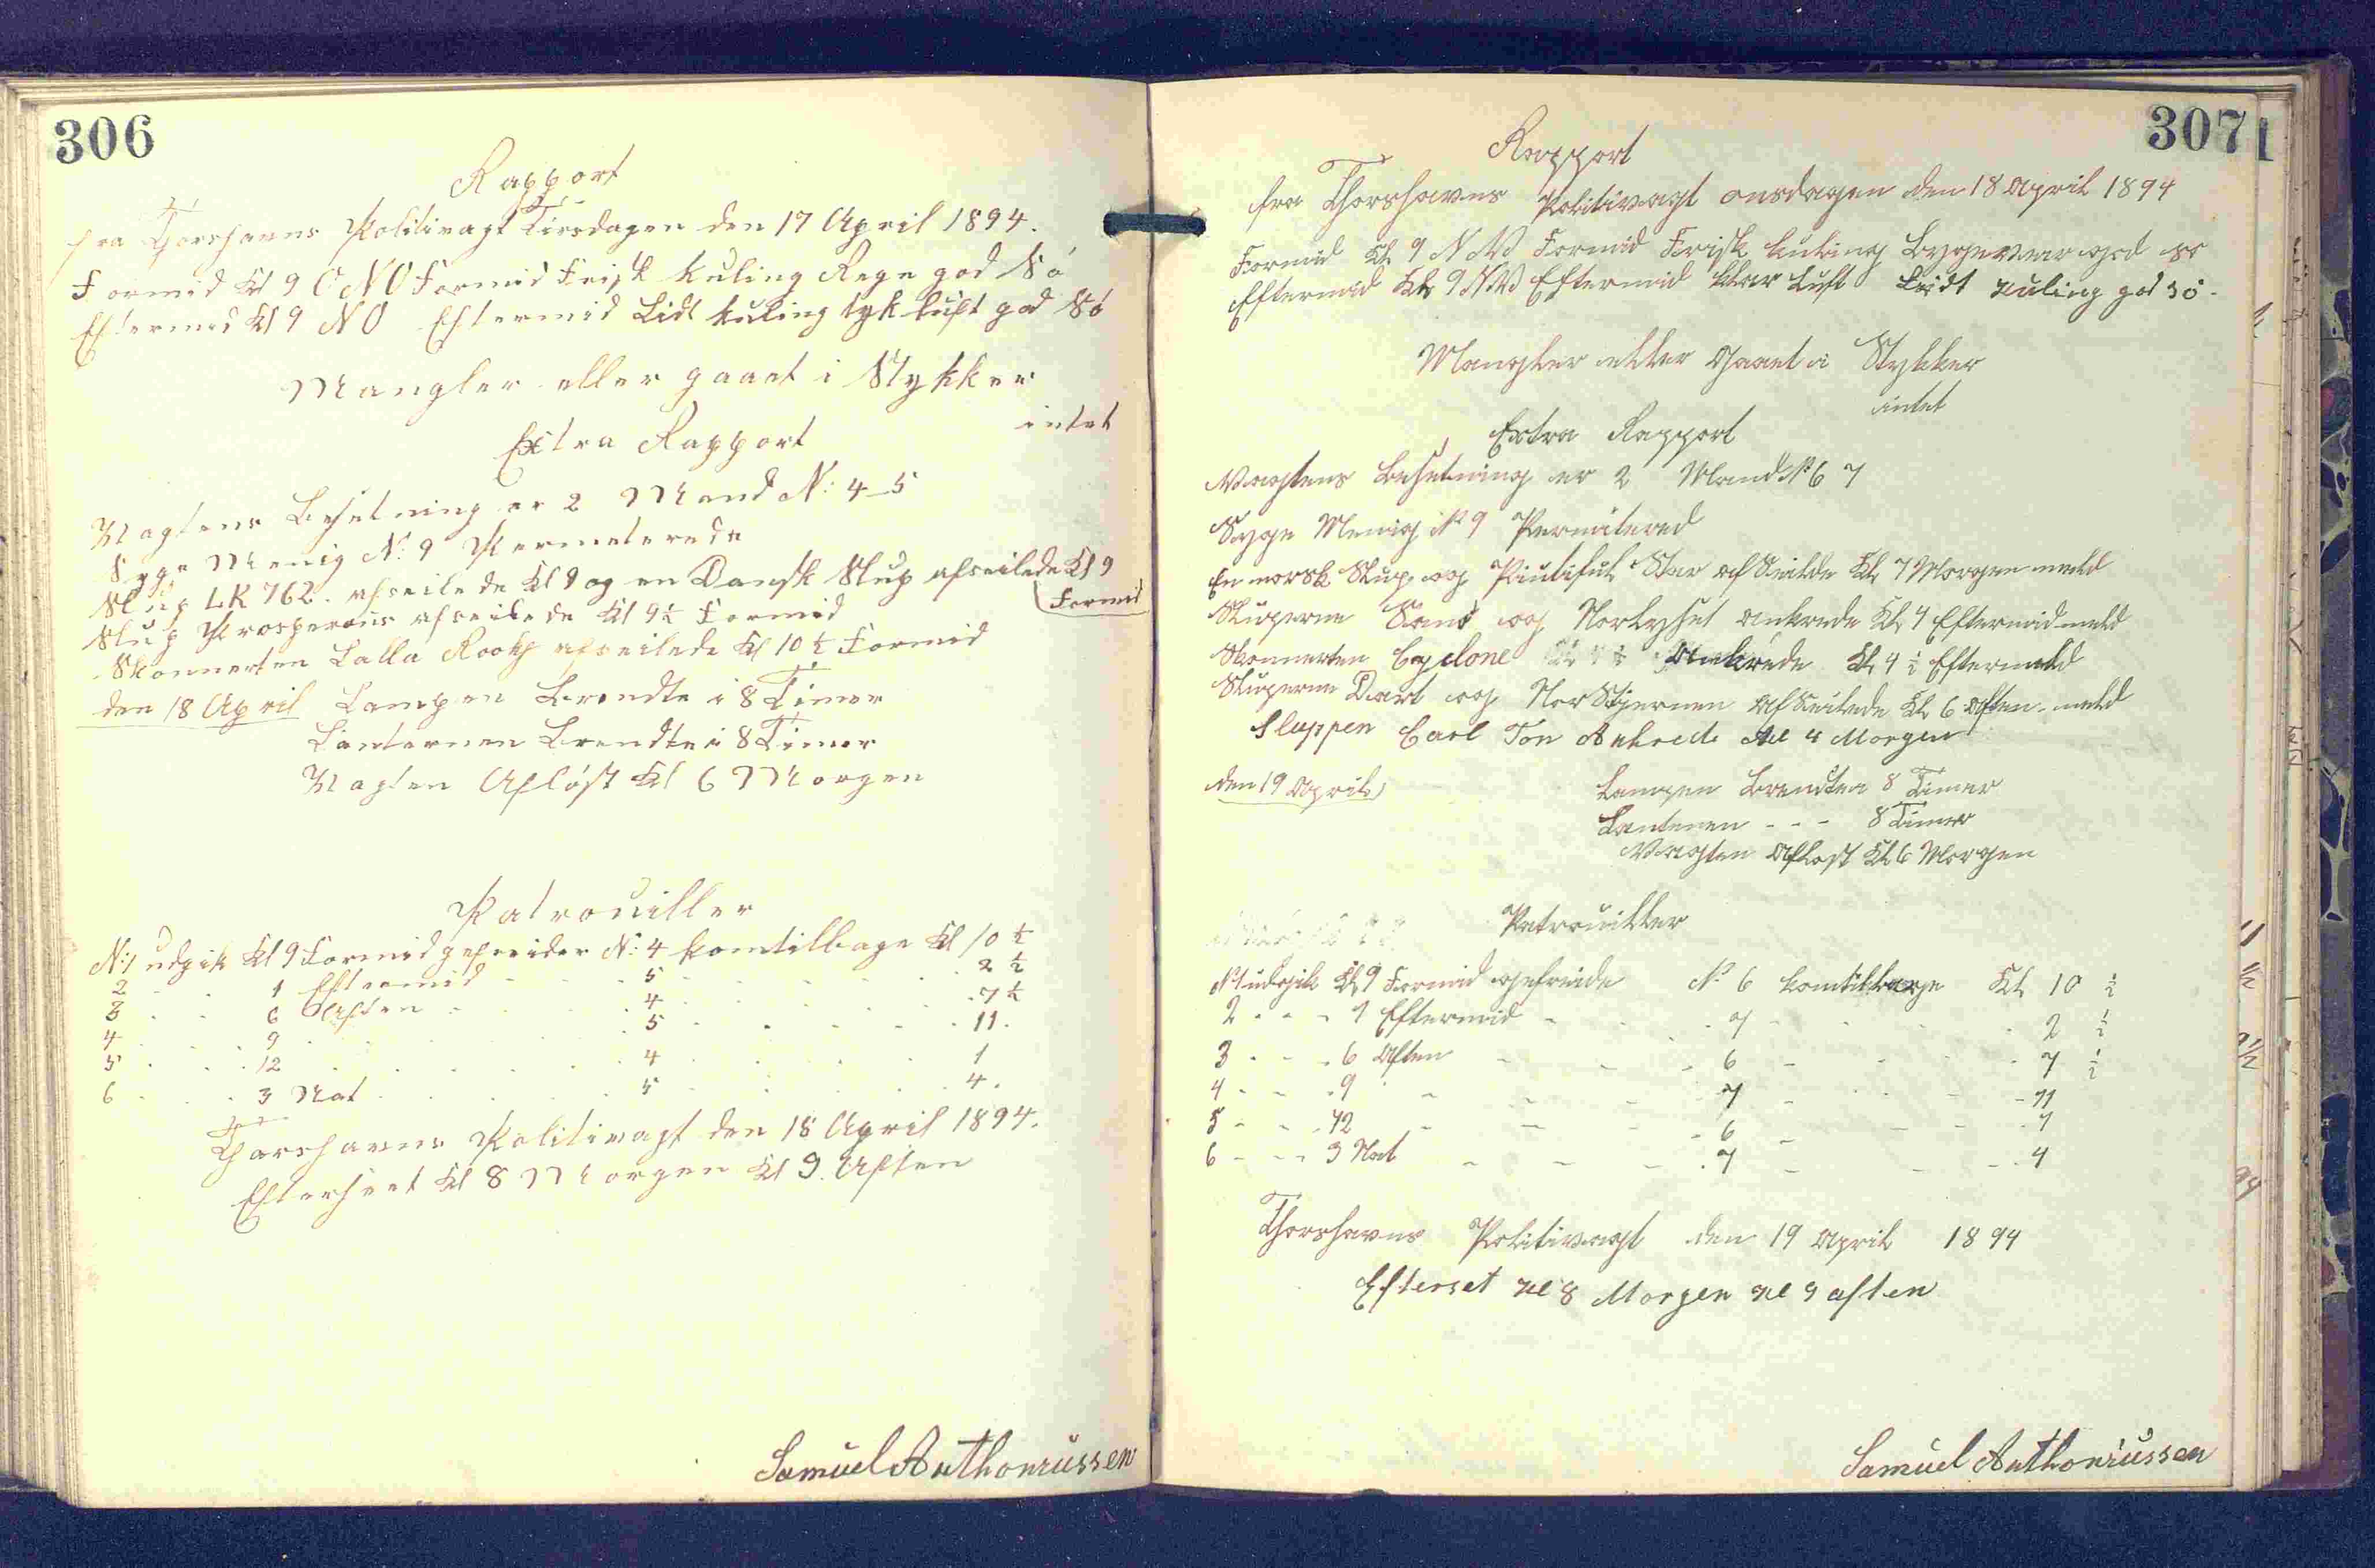 306
Rapport
fra Thorshavns Politivagt Tirsdagen den 17 April 1894.
Formid Kl 9 ONO Formid Frisk Kuling Regn god Sö
Eftermid Kl 9 NO Eftermid Lidt kuling tyk luft god Sö
Mangler eller gaaet i Stykker
intet
Extra Rapport
Vagtens Besetning er 2 Mand N: 4-5
Syge Menig N: 9 Permeterede
Slup LK 762. afseilede Kl 9 og en Dansk Slup afseilede Kl 9
Formid
Slup Prosperous afseilede Kl 9½ Formid
Skonnerten Lalla Rookh afseilede Kl 10½ Formid
den 18 April Lampen Brendte i 8 Timer
Lanternen Brendte i 8 Timer
Vagten Aflöst Kl 6 Morgen
Patrouiller
N:1 udgik Kl 9 Formid gefreider N: 4 komtilbage Kl 10 ½
2 - - 1 Eftermid - - 5 - - - - 2 ½
3 - - 6 Aften - - 4 - - - - 7 ½
4 - - 9 - - - 5 - - - - 11.
5 - - 12 - - - 4 - - - - 1
6 - - 3 Nat - - 5 - - - - 4.
Thorshavns Politivagt den 18 April 1894.
Efterseet Kl 8 Morgen Kl 9. Aften
Samuel Anthoniussen
307
Rapport
fra Thorshavns Politivagt onsdagen den 18 April 1894
Formid Kl 9 NW Formid Frisk kuling Bygevær god so
Eftermid Kl 9 NW Eftermid klar Luft Lidt Kuling god sö-
Mangler eller Gaaet i Stykker
intet
Extra Rapport
Vagtens Besetning er 2 Mand N 6 7
Syge Menig N 9 Permitered
En norsk Slup og Piutiful Star af Seilde Kl 7 Morgen meld
Sluperne Sand og Norlyset ankrede Kl 4 Eftermid meld
Skonnerten Cyclone Ankrede Kl 4½ Eftermeld
Sluperne Dart og Nor Stjernen Af Seilede Kl 6 Aften meld
Sluppen Carl Ton Ankrede Kl 4 Morgen
den 19 April
Lampen Brendten 8 Timer
Lanternen - - - 8 Timer
Vagten Aflost Kl 6 Morgen
Patrouiller
N 1 udgik Kl 9 Formid gefreide N 6 komtilbage Kl 10 ½
2 - - - 1 Eftermid - - 7 - - - 2 ½
3 - - - 6 Aften - - 6 - - - 7 ½
4 - - - 9 - - - - 7 - - - 11
5 - - - 12 - - - - 6 - - - 1
6 - - - 3 Nat - - - 7 - - - 4
Thorshavns Politivagt den 19 April 1894
Efterset Kl 8 Morgen Kl 9 aften
Samuel Anthoniussen